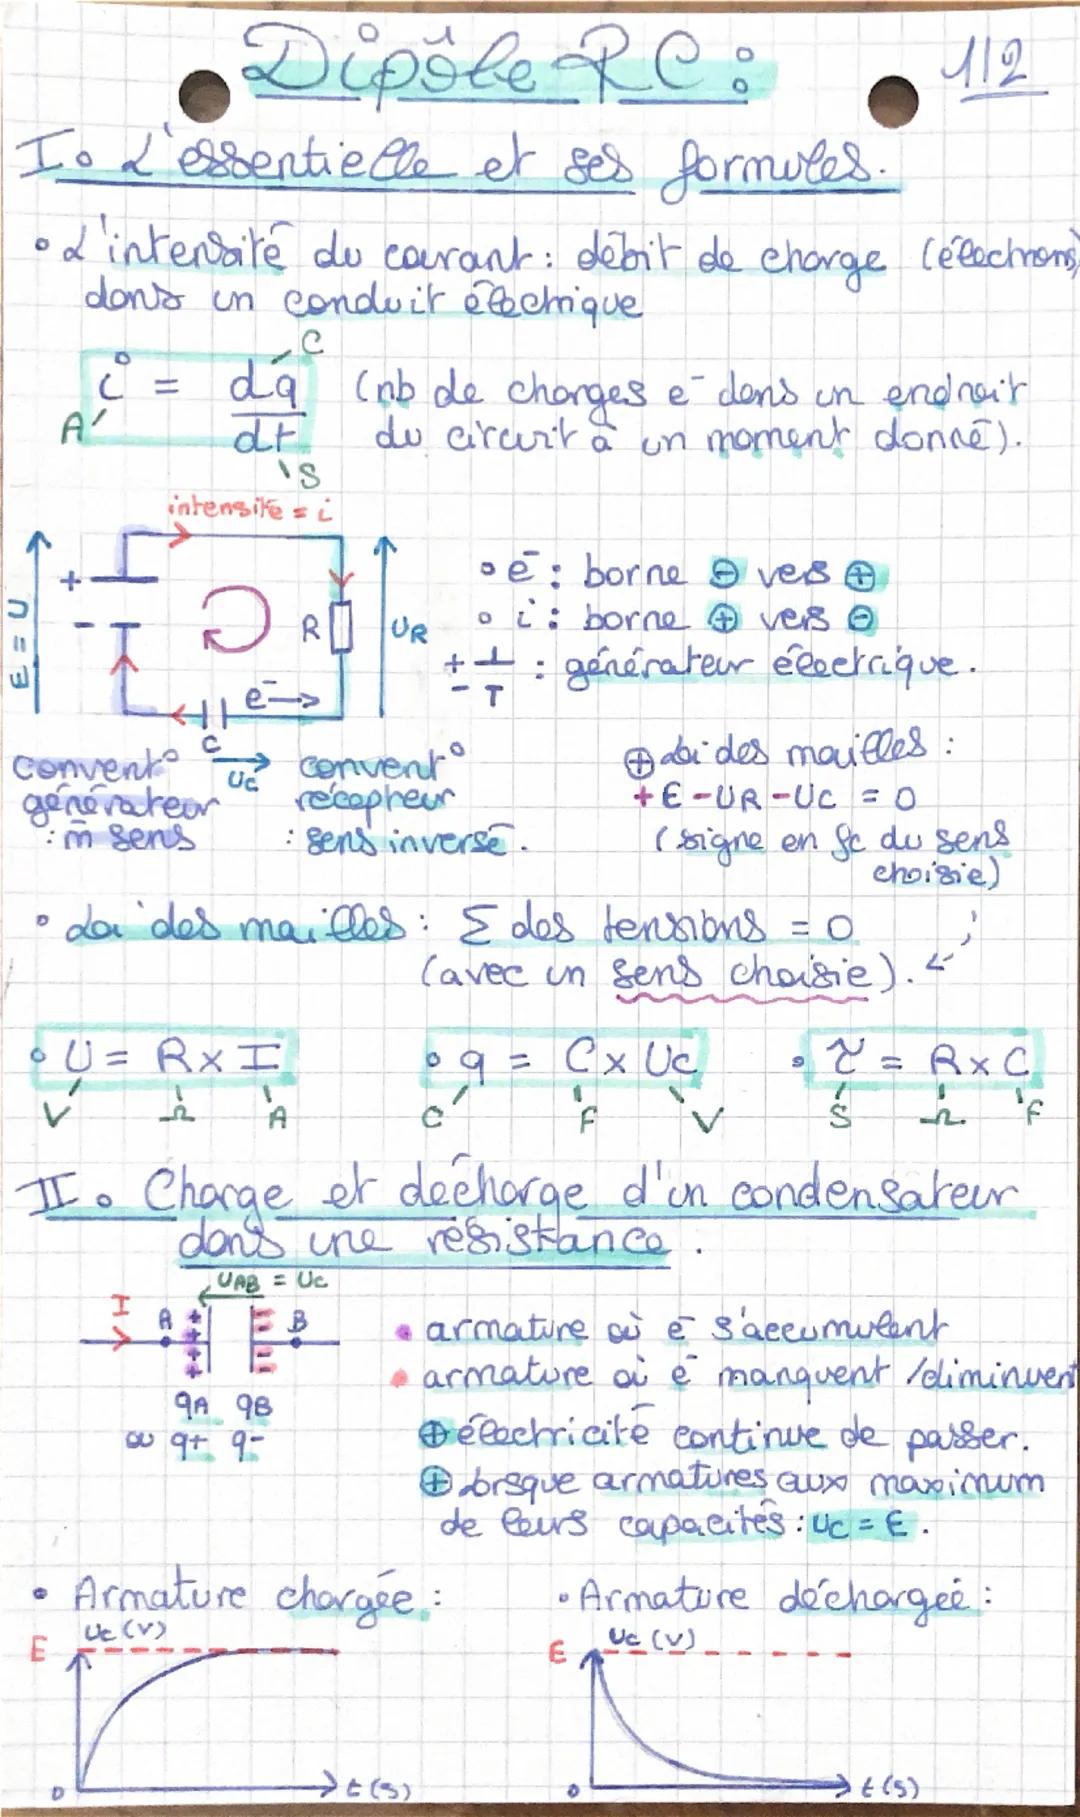 Dipôle RC : 1/2
I. L'essentielle et ses formules.
• L'intensité du courant : débit de charge (électrons)
dans un conduit électrique
i = dq/dt (nb de charges e⁻ dans un endroit
du circuit à un moment donné).
A C S
intensité = i
E = U
+
-
R
UR
e⁻ →
C
UC
• e⁻ : borne ⊖ vers ⊕
• i : borne ⊕ vers ⊖
+ - : générateur électrique.
convent° générateur : m̄ sens
convent° récepteur : sens inverse.
⊕ Loi des mailles :
+E - UR - UC = 0
(signe en fc du sens
choisie)
• Loi des mailles : Σ des tensions = 0
(avec un sens choisie).
• U = R x I
V Ω A
• q = C x Uc
C F V
• τ = R x C
S Ω F
II. Charge et décharge d'un condensateur
dans une résistance.
UAB = Uc
I A + + + + B
qA qB
ou q+ q-
• armature où e⁻ s'accumulent
• armature où e⁻ manquent /diminuent
⊕ électricité continue de passer.
⊕ Lorsque armatures aux maximum
de leurs capacités : Uc = E.
• Armature chargée :
Uc (V)
E
0 t (s)
• Armature déchargée :
Uc (V)
E
0 t (s)